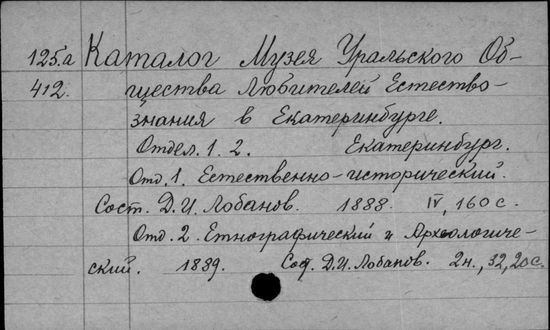 125.а Каталог Музея Уральского Об-
412. щества Любителей Естество-
знания в Екатеринбурге.
Отдел. 1. 2. Екатеринбург.
Отд. 1. Естественно-исторический.
Сост. Д.И. Лобанов. 1888. IV, 160 с.
Отд. 2. Етнографический и Археологиче-
ский. 1889. Сост. Д.И. Лобанов. 2н., 32, 20 с.